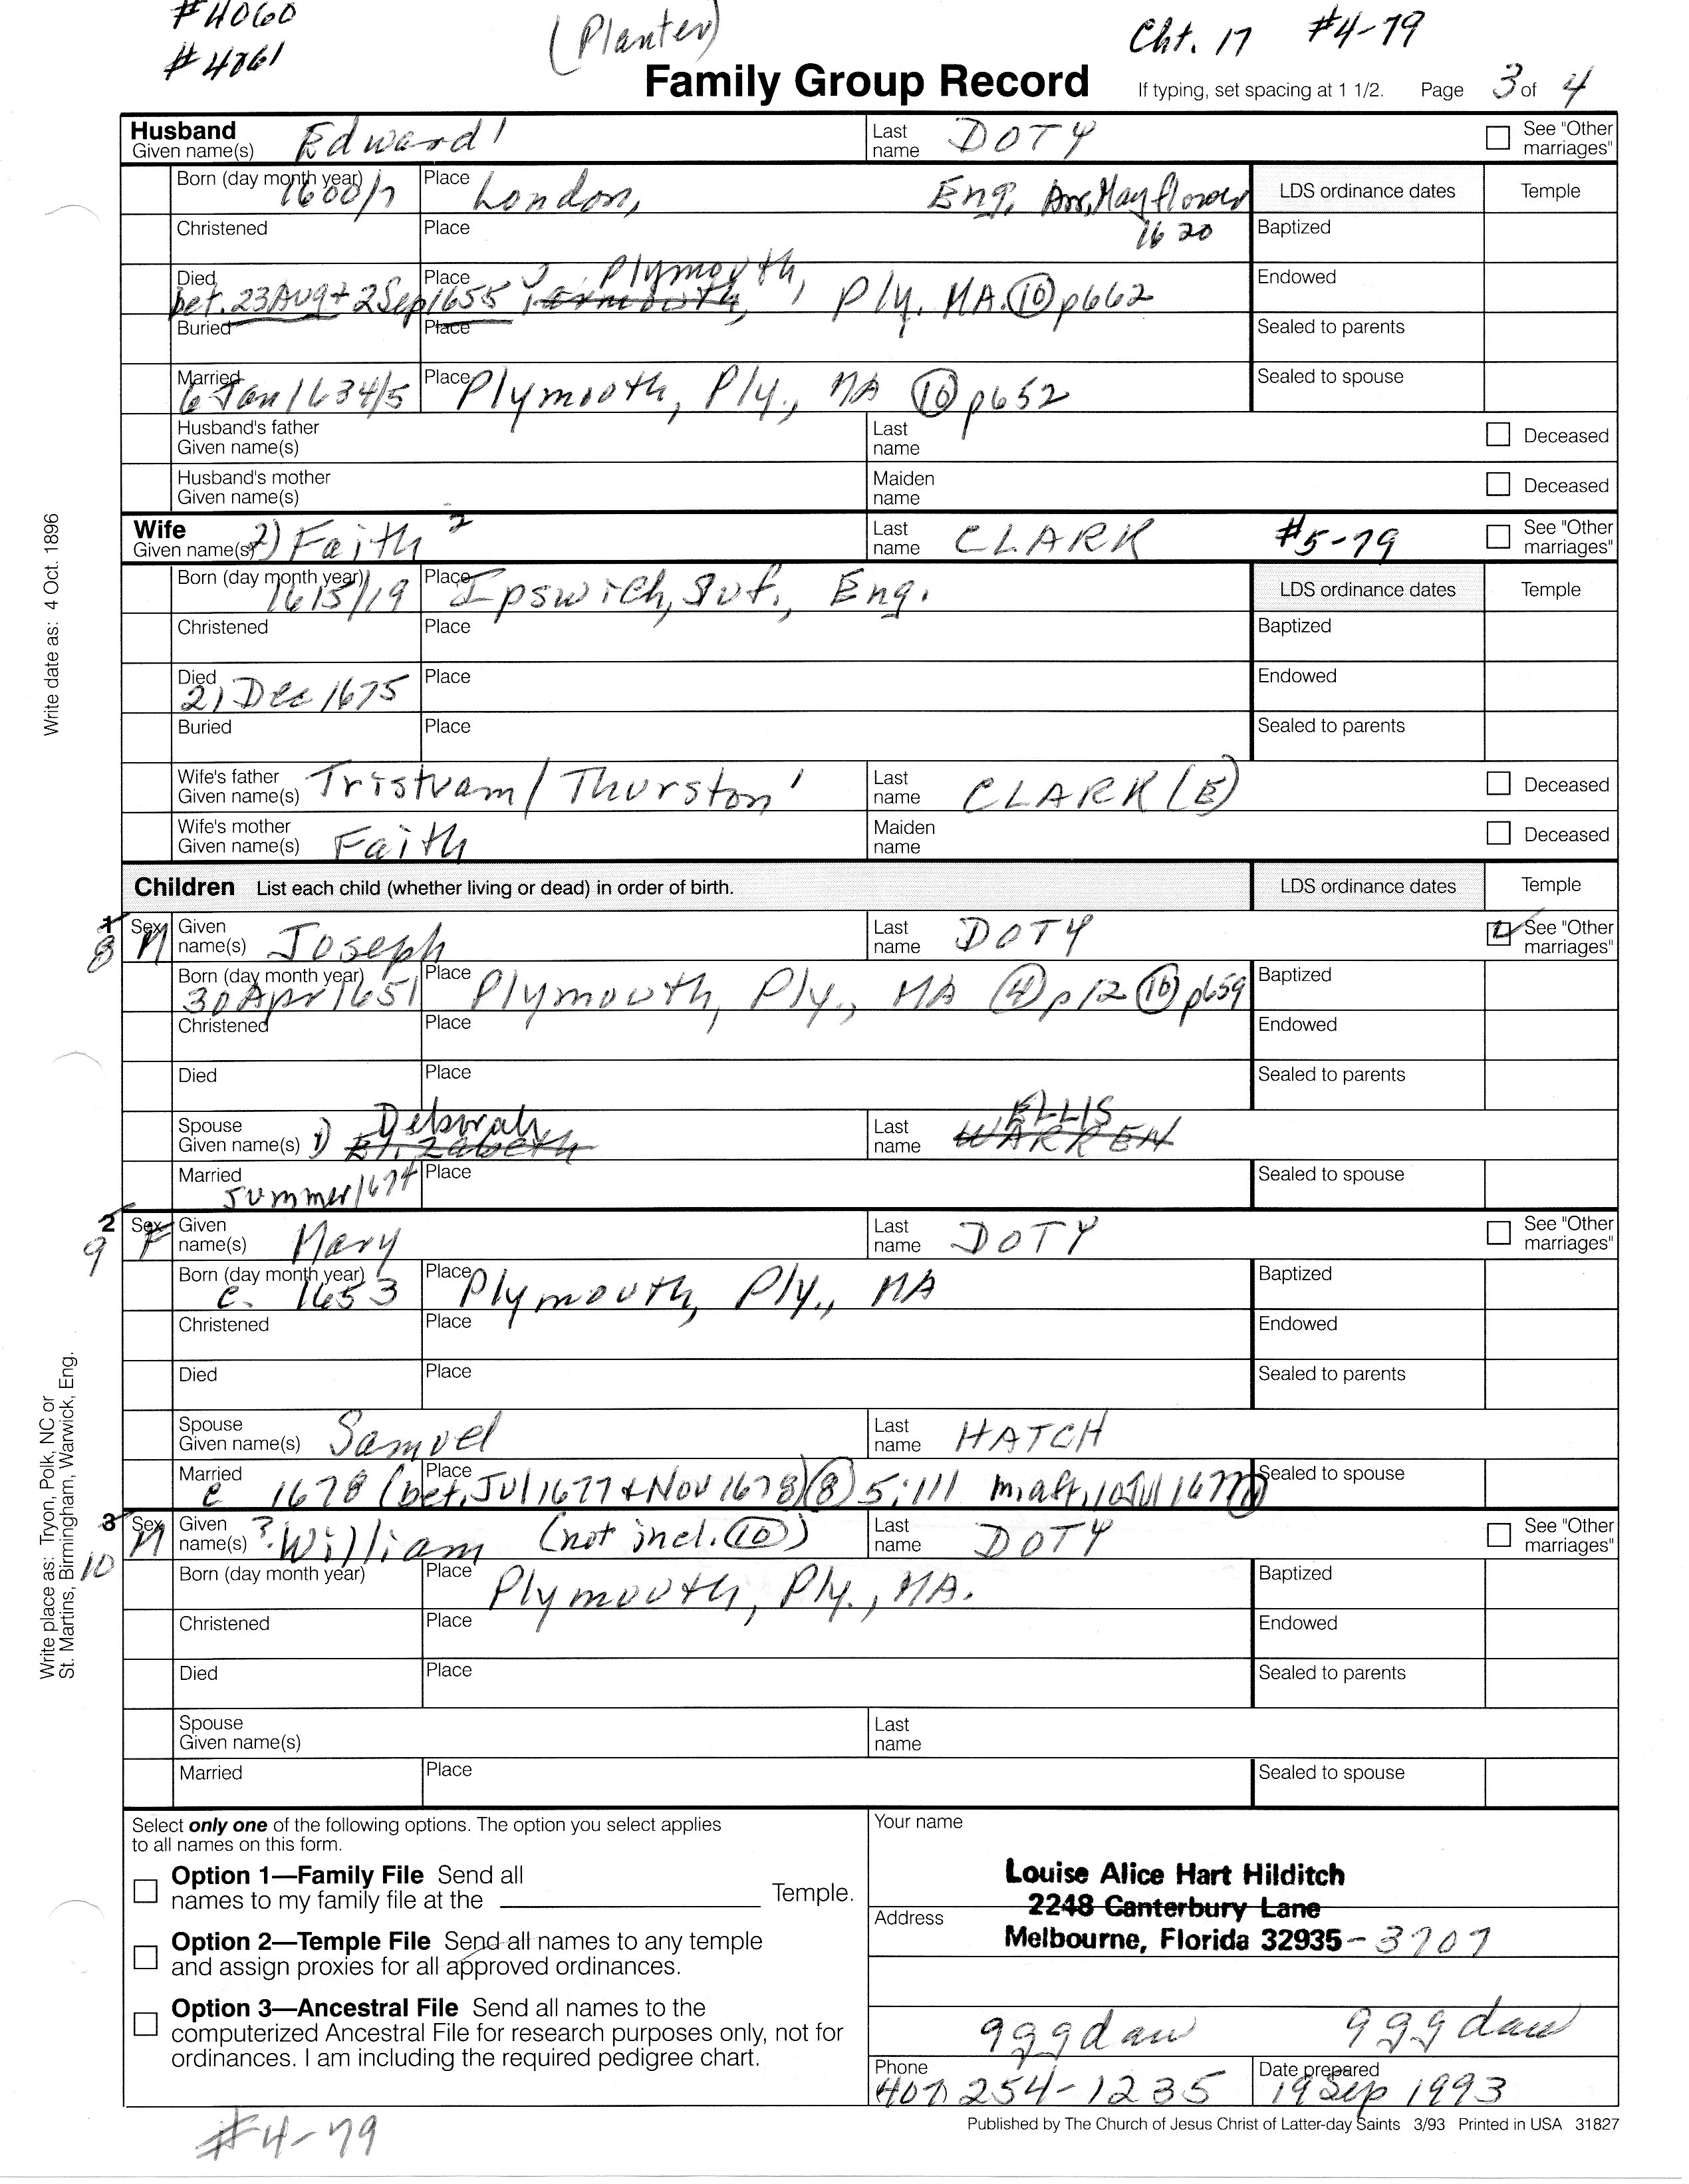 #4060 (Planter) Cht. 17 #4-79
#4861
Family Group Record If typing, set spacing at 1 1/2. Page 3 of 4
Husband Given name(s) Edward 1 Last name DOTY See "Other marriages"
Born (day month year) 1600/7 Place London, Eng. Arr. Mayflower 1620 LDS ordinance dates Temple
Christened Place Baptized
Died bet. 23 Aug + 2 Sep 1655 Place Plymouth, Ply. MA. (10) p662 Endowed
Buried Place Sealed to parents
Married 6 Jan 1634/5 Place Plymouth, Ply., MA (10) p652 Sealed to spouse
Husband's father Given name(s) Last name Deceased
Husband's mother Given name(s) Maiden name Deceased
Wife Given name(s) 2) Faith 2 Last name CLARK #5-79 See "Other marriages"
Born (day month year) 1615/19 Place Ipswich, Suf., Eng. LDS ordinance dates Temple
Christened Place Baptized
Died 21 Dec 1675 Place Endowed
Buried Place Sealed to parents
Wife's father Given name(s) Tristram / Thurston 1 Last name CLARK (E) Deceased
Wife's mother Given name(s) Faith Maiden name Deceased
Children List each child (whether living or dead) in order of birth. LDS ordinance dates Temple
1 8 Sex M Given name(s) Joseph Last name DOTY See "Other marriages"
Born (day month year) 30 Apr 1651 Place Plymouth, Ply., MA (4) p12 (10) p659 Baptized
Christened Place Endowed
Died Place Sealed to parents
Spouse Given name(s) 1) Deborah Elizabeth Last name ELLIS WARREN
Married Summer 1674 Place Sealed to spouse
2 9 Sex F Given name(s) Mary Last name DOTY See "Other marriages"
Born (day month year) c. 1653 Place Plymouth, Ply., MA Baptized
Christened Place Endowed
Died Place Sealed to parents
Spouse Given name(s) Samuel Last name HATCH
Married c 1678 (bet. Jul 1677 + Nov 1678) (8) 5:111 m. aft. 10 Jul 1677 Place Sealed to spouse
3 10 Sex M Given name(s) ? William (not incl. (10)) Last name DOTY See "Other marriages"
Born (day month year) Place Plymouth, Ply., MA. Baptized
Christened Place Endowed
Died Place Sealed to parents
Spouse Given name(s) Last name
Married Place Sealed to spouse
Select only one of the following options. The option you select applies
to all names on this form.
Option 1—Family File Send all
names to my family file at the Temple.
Option 2—Temple File Send all names to any temple
and assign proxies for all approved ordinances.
Option 3—Ancestral File Send all names to the
computerized Ancestral File for research purposes only, not for
ordinances. I am including the required pedigree chart.
Your name
Louise Alice Hart Hilditch
2248 Canterbury Lane
Address
Melbourne, Florida 32935-3707
9ggdaw 9ggdaw
Phone 407 254-1235 Date prepared 19 Sep 1993
Published by The Church of Jesus Christ of Latter-day Saints 3/93 Printed in USA 31827
#4-79
Write date as: 4 Oct. 1896
Write place as: Tryon, Polk, NC or
St. Martins, Birmingham, Warwick, Eng.